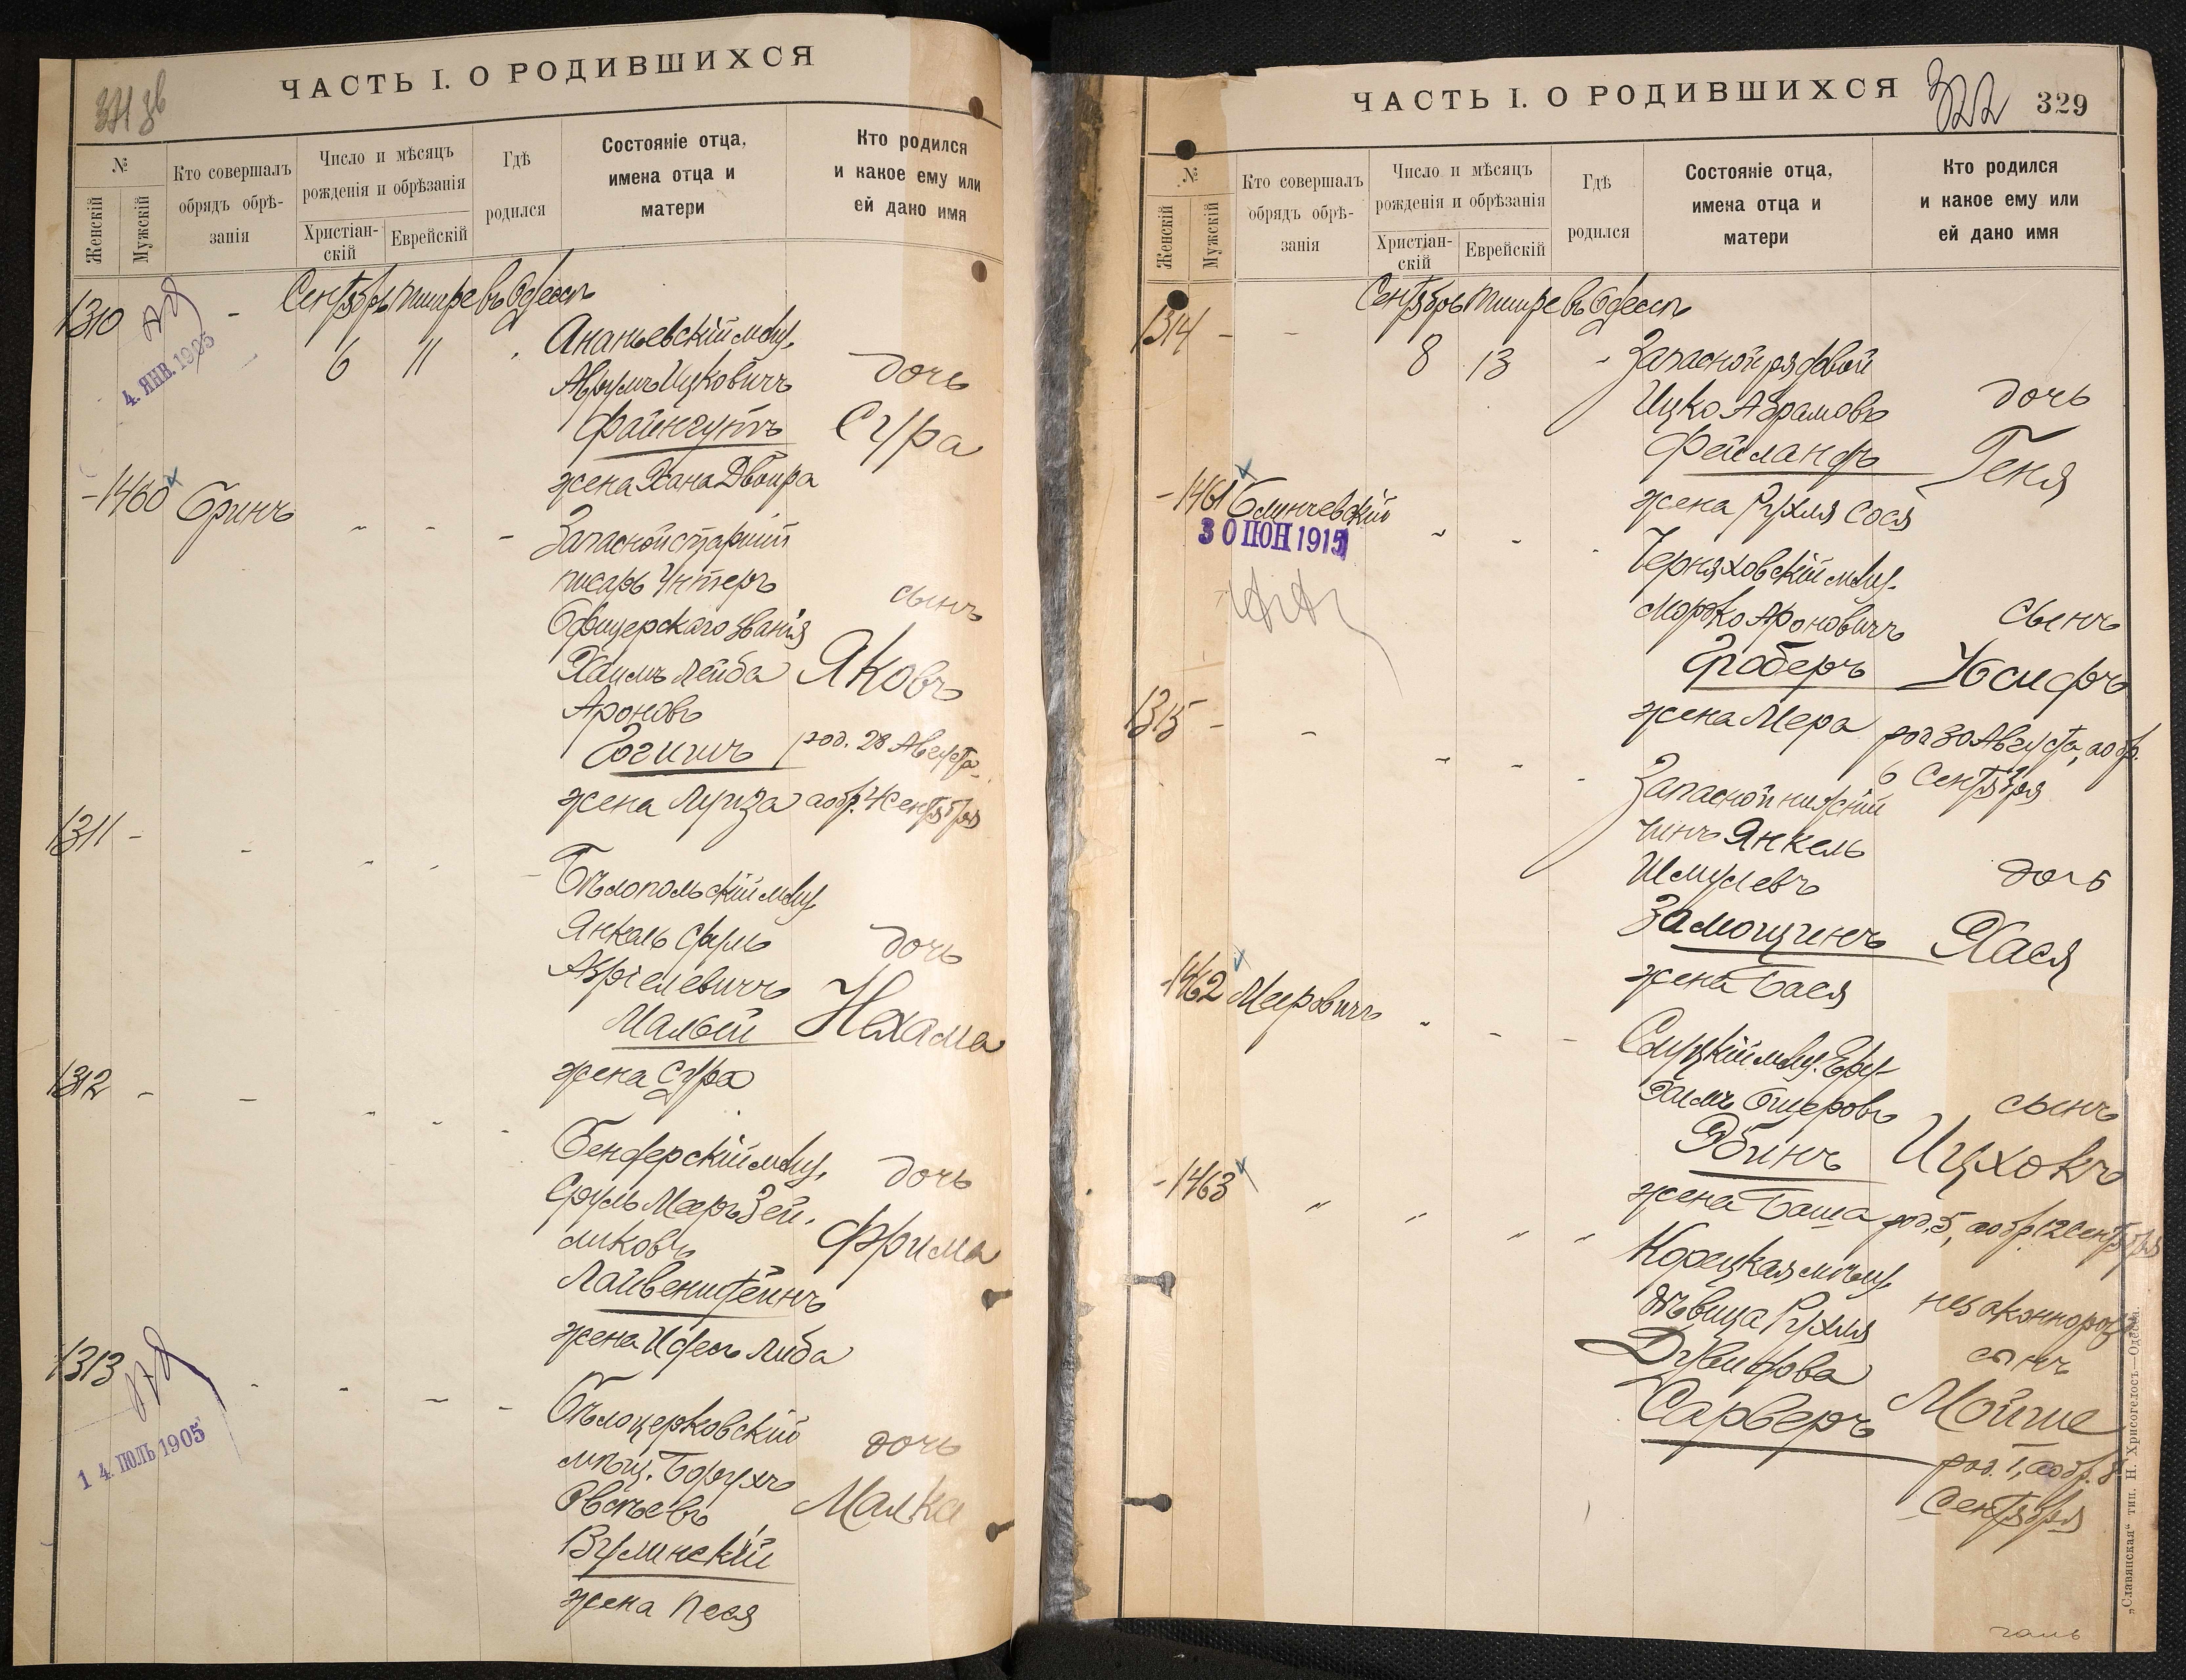 ЧАСТЬ I. О РОДИВШИХСЯ
№
Женскій
Мужскій
Кто совершалъ
обрядъ обрѣ-
занія
Число и мѣсяцъ
рожденія и обрѣзанія
Христіан-
скій
Еврейскій
Гдѣ
родился
Состояніе отца,
имена отца и
матери
Кто родился
и какое ему или
ей дано имя
Сентябрь Тишре въ Одессѣ
1310 -
4. ЯНВ. 1905
6 11
Ананьевскій мѣщ.
Аврумъ Ицковичъ
Файнгутъ
жена Хана Двойра
дочь
Сура
- 1460 Бринъ
Запасной старшій
писарь Унтеръ
Офицерскаго званія
Хаимъ Лейба
Ароновъ
Гогишъ
жена Луиза
сынъ
Яковъ
род. 28 Августа,
а обр. 4 Сентября
1311 -
Бѣлопольскій мѣщ.
Янкель Сруль
Азріелевичъ
Малый
жена Сура
дочь
Нехама
1312 -
Бендерскій мѣщ.
Сруль Мееръ Зей-
ликовъ
Лайвенштейнъ
жена Идесъ Либа
дочь
Фрима
1313
1 4. ІЮЛЬ 1905
Бѣлоцерковскій
мѣщ. Борухъ
Овсѣевъ
Вулинскій
жена Песя
дочь
Малка
ЧАСТЬ I. О РОДИВШИХСЯ
322
329
№
Женскій
Мужскій
Кто совершалъ
обрядъ обрѣ-
занія
Число и мѣсяцъ
рожденія и обрѣзанія
Христіан-
скій
Еврейскій
Гдѣ
родился
Состояніе отца,
имена отца и
матери
Кто родился
и какое ему или
ей дано имя
Сентябрь Тишре въ Одессѣ
1314 -
8 13
Запасной рядовой
Ицко Абрамовъ
Фейландъ
жена Рухля Сося
дочь
Геня
- 1461 Блинчевскій
3 0 ІЮН 1915
Черняховскій мѣщ.
Мордко Ароновичъ
Гроберъ
жена Мера
сынъ
Іосифъ
род 30 Августа, а обр.
6 Сентября
1315 -
Запасной нижній
чинъ Янкель
Шмулевъ
Замощинъ
жена Бася
дочь
Хася
- 1462 Меровичъ
Слуцкій мѣщ. Еру-
химъ Ошеровъ
Рбинъ
жена Баша
сынъ
Ицхокъ
род. 5, а обр. 12 Сентября
- 1463
Корецкая мѣщ.
дѣвица Рухля
Дувидова
Сарверъ
незаконнорож.
сынъ
Мойше
род. 1, а обр. 8
Сентября
„Славянская“ тип. Н. Хрисогелосъ.—Одесса.